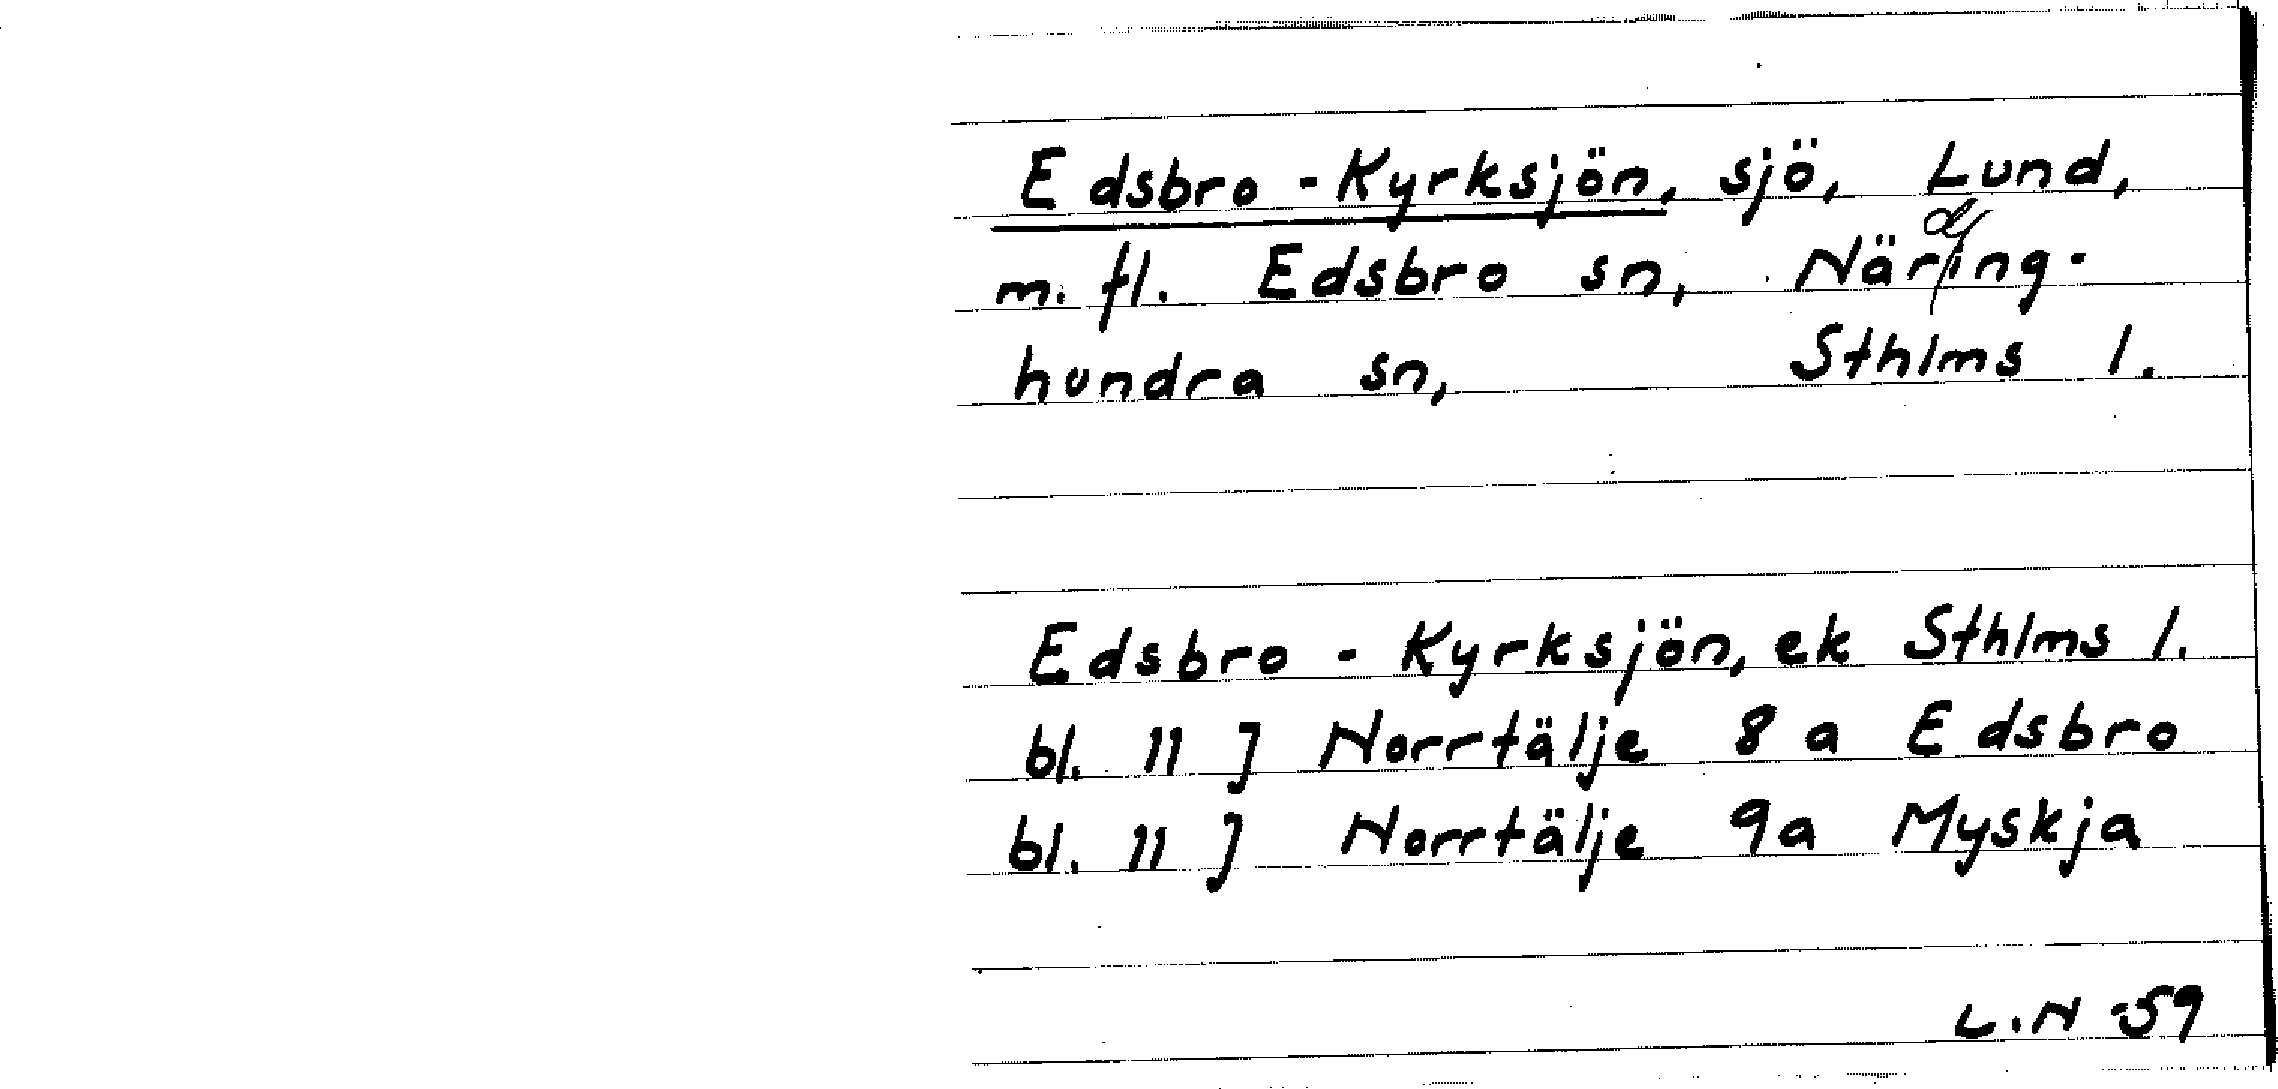 Edsbro-Kyrksjön, sjö, Lund,
m. fl. Edsbro sn, Näring-
hundra sn, Sthlms l.
Edsbro-Kyrksjön, ek Sthlms l.
bl. 11 J Norrtälje 8 a Edsbro
bl. 11 J Norrtälje 9a Myskja
L.N -59